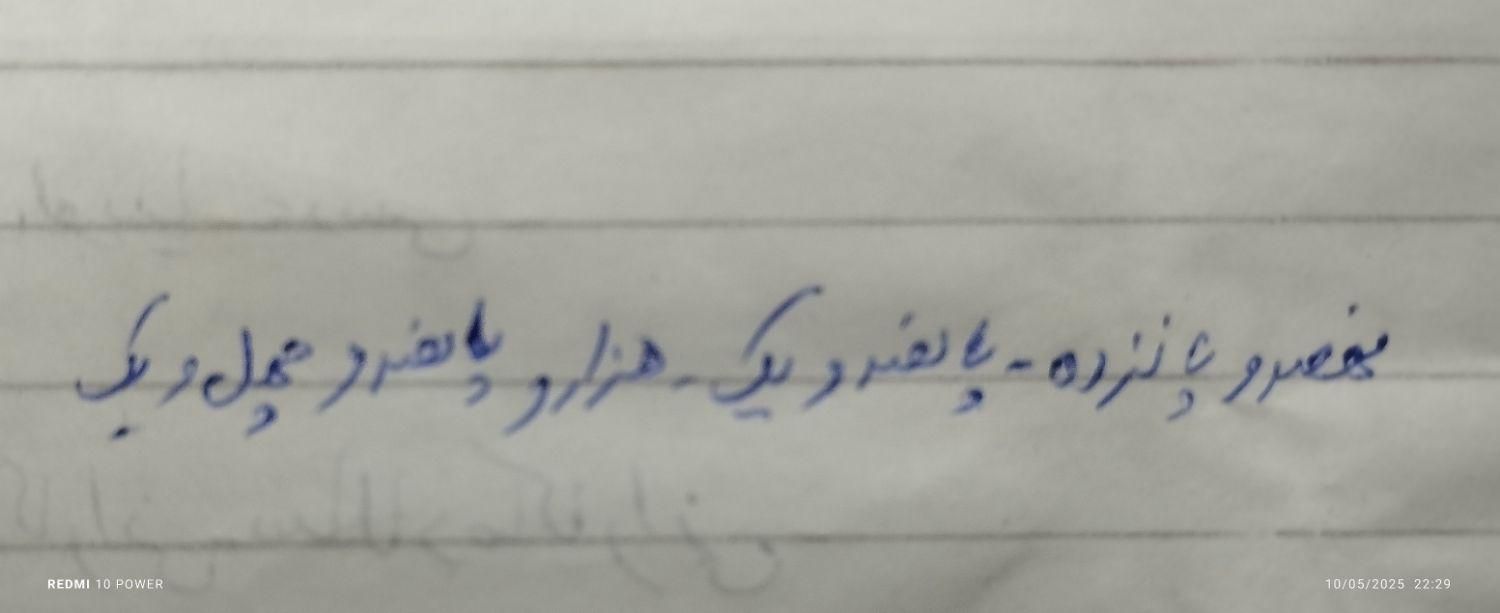 هفتصد و پانزده - پانصد و یک - هزار و پانصد و چهل و یک
REDMI 10 POWER
10/05/2025 22:29